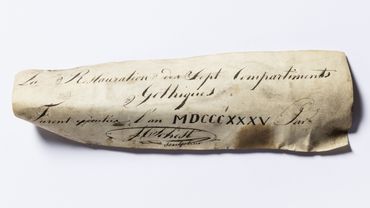 La Restauration des Sept Compartiments
Gothiques
Furent exécutées l'an MDCCCXXXV Par
Sculpteur